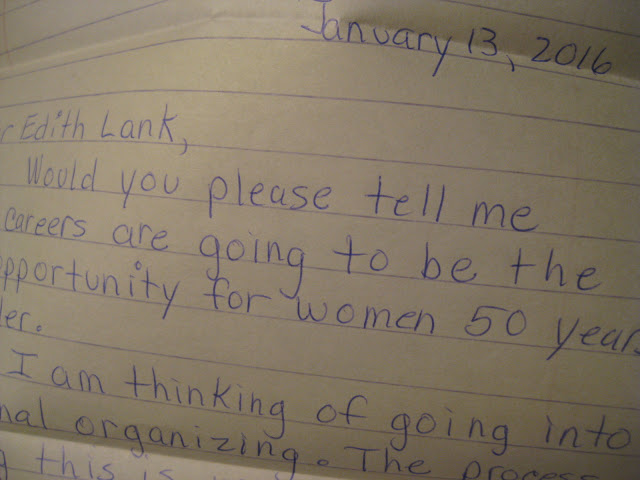 January 13, 2016
r Edith Lank,
Would you please tell me
careers are going to be the
pportunity for women 50 years
ler.
I am thinking of going into
nal organizing. The process
g this is